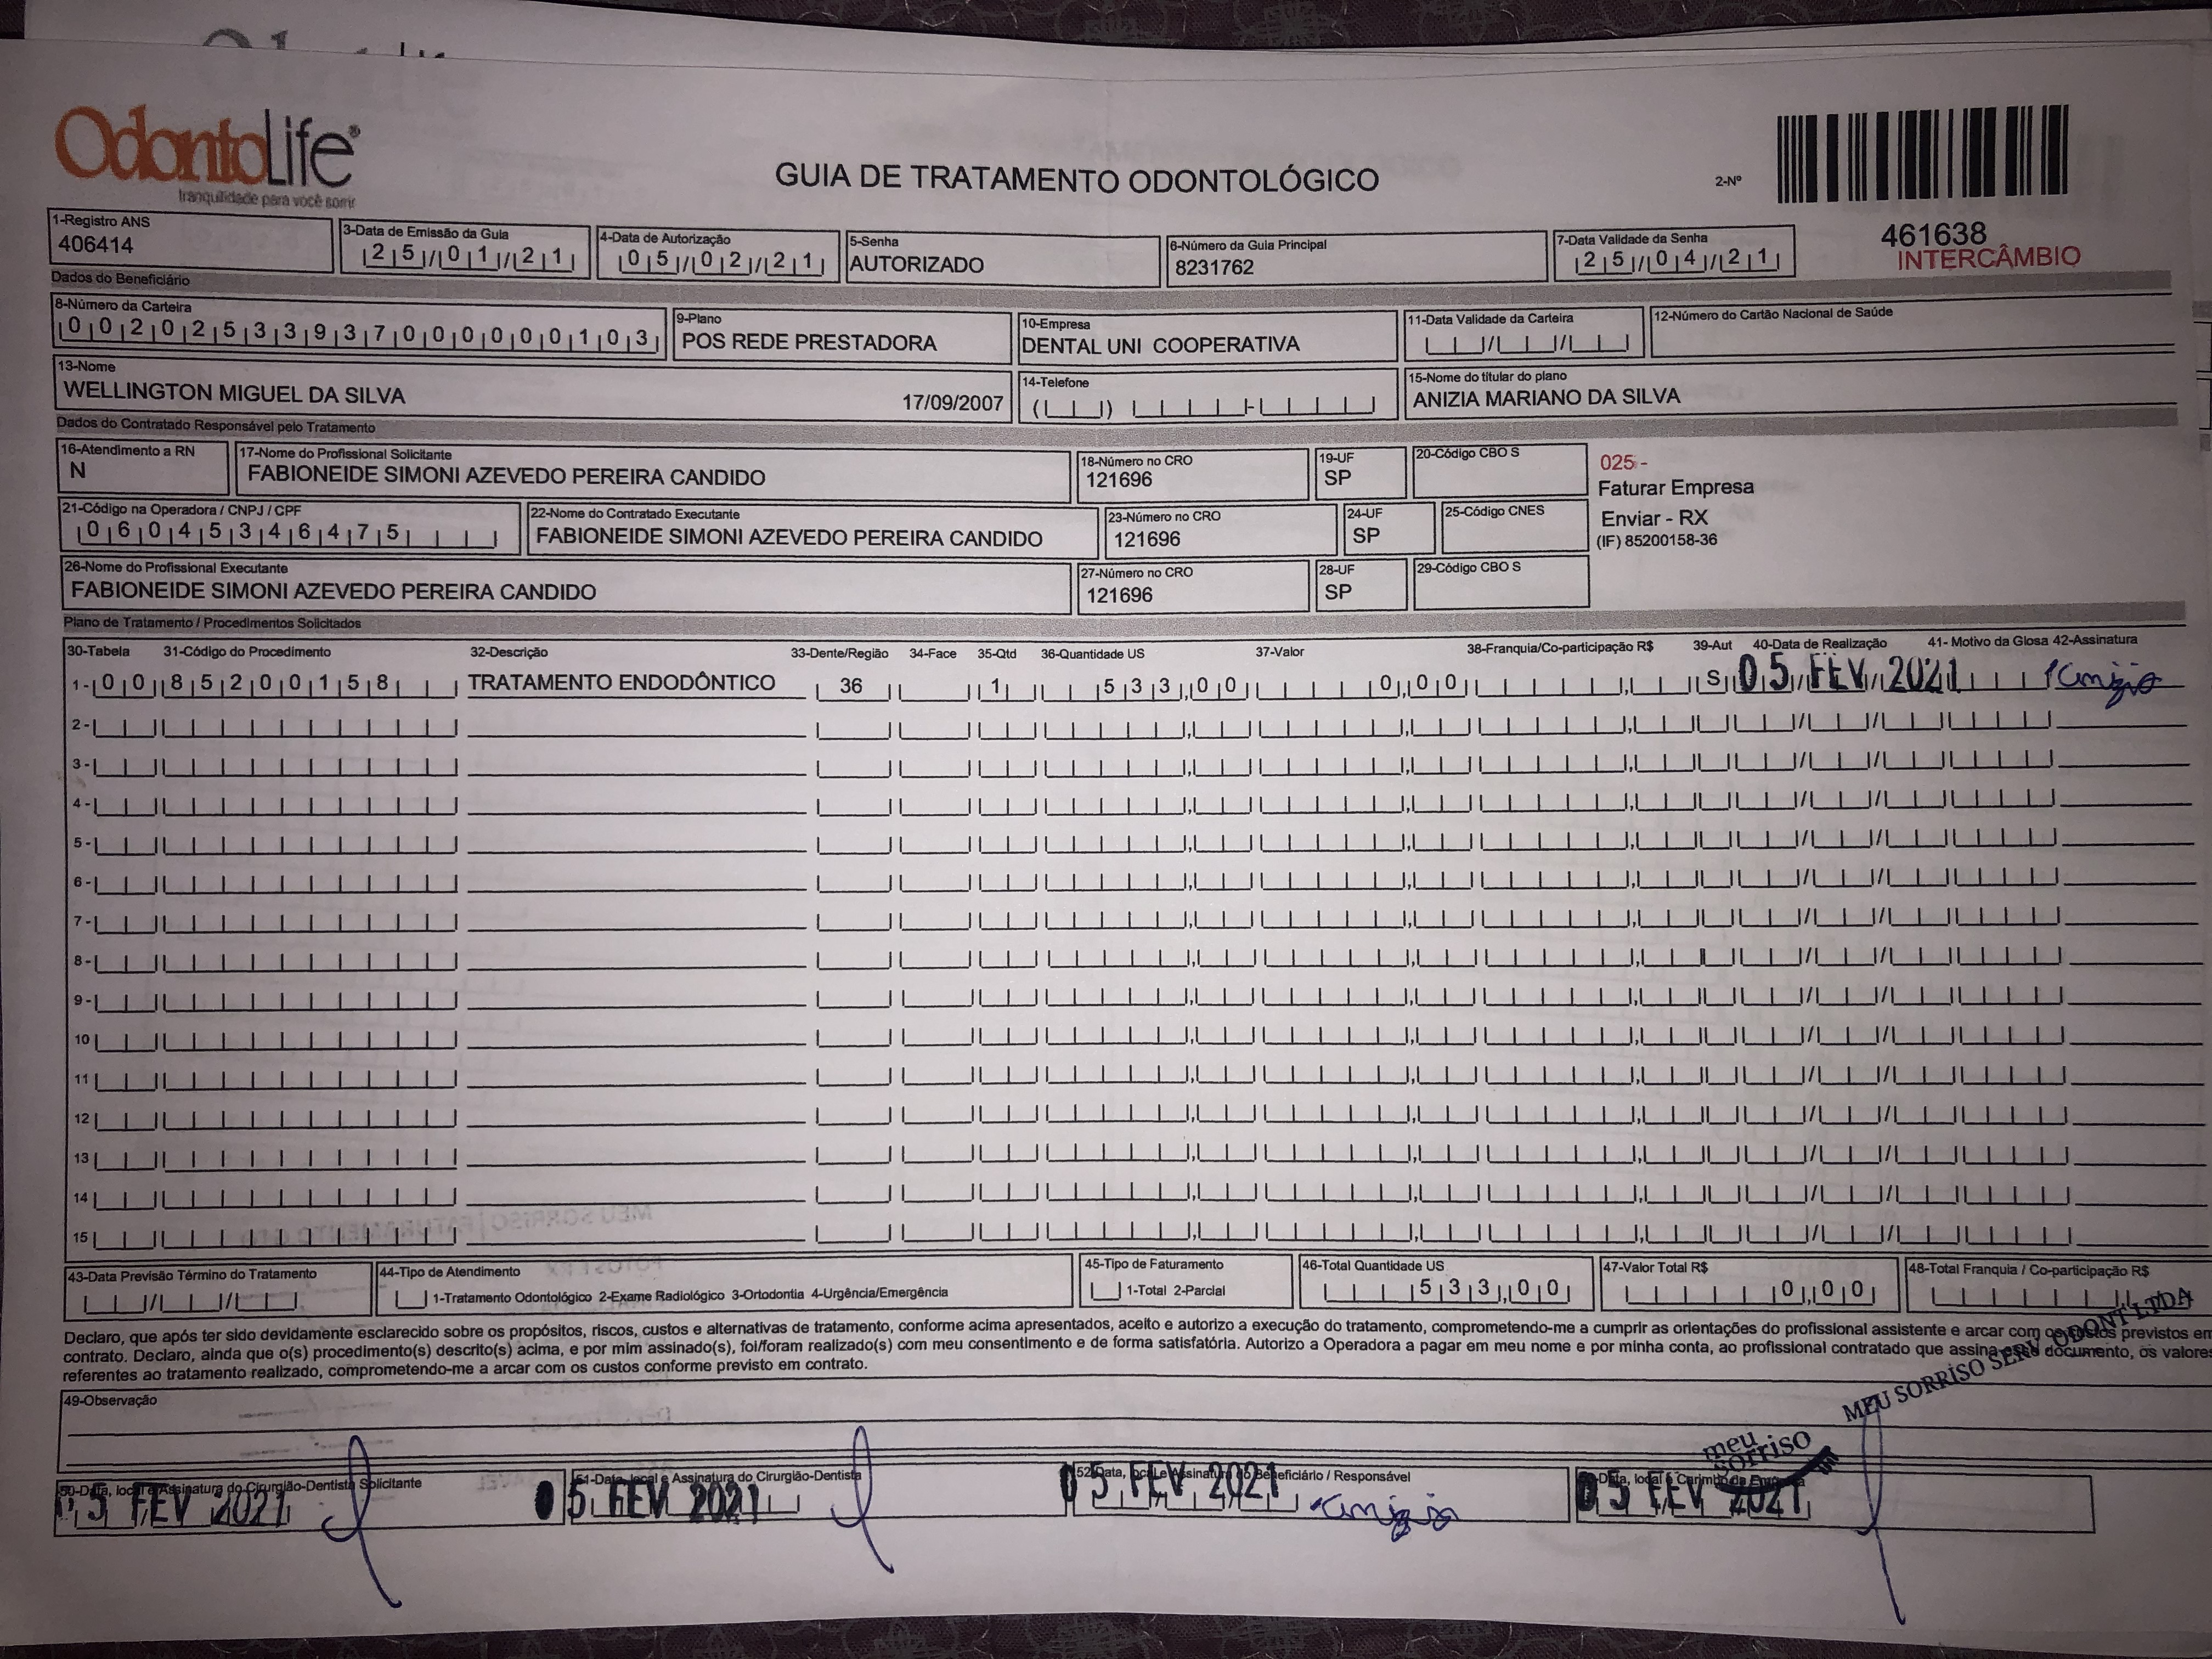 OdontoLife®
tranquilidade para você sorrir
GUIA DE TRATAMENTO ODONTOLÓGICO
2-Nº
461638
INTERCÂMBIO
1-Registro ANS
406414
3-Data de Emissão da Guia
25/01/21
4-Data de Autorização
05/02/21
5-Senha
AUTORIZADO
6-Número da Guia Principal
8231762
7-Data Validade da Senha
25/04/21
Dados do Beneficiário
8-Número da Carteira
00202533937000000103
9-Plano
POS REDE PRESTADORA
10-Empresa
DENTAL UNI COOPERATIVA
11-Data Validade da Carteira
12-Número do Cartão Nacional de Saúde
13-Nome
WELLINGTON MIGUEL DA SILVA 17/09/2007
14-Telefone
15-Nome do titular do plano
ANIZIA MARIANO DA SILVA
Dados do Contratado Responsável pelo Tratamento
16-Atendimento a RN
N
17-Nome do Profissional Solicitante
FABIONEIDE SIMONI AZEVEDO PEREIRA CANDIDO
18-Número no CRO
121696
19-UF
SP
20-Código CBO S
025 -
Faturar Empresa
Enviar - RX
(IF) 85200158-36
21-Código na Operadora / CNPJ / CPF
06045346475
22-Nome do Contratado Executante
FABIONEIDE SIMONI AZEVEDO PEREIRA CANDIDO
23-Número no CRO
121696
24-UF
SP
25-Código CNES
26-Nome do Profissional Executante
FABIONEIDE SIMONI AZEVEDO PEREIRA CANDIDO
27-Número no CRO
121696
28-UF
SP
29-Código CBO S
Plano de Tratamento / Procedimentos Solicitados
30-Tabela 31-Código do Procedimento 32-Descrição 33-Dente/Região 34-Face 35-Qtd 36-Quantidade US 37-Valor 38-Franquia/Co-participação R$ 39-Aut 40-Data de Realização 41- Motivo da Glosa 42-Assinatura
1- 00 85200158 TRATAMENTO ENDODÔNTICO 36 1 533,00 0,00 S 05 FEV 2021 Anizia
2-
3-
4-
5-
6-
7-
8-
9-
10
11
12
13
14
15
43-Data Previsão Término do Tratamento
44-Tipo de Atendimento
1-Tratamento Odontológico 2-Exame Radiológico 3-Ortodontia 4-Urgência/Emergência
45-Tipo de Faturamento
1-Total 2-Parcial
46-Total Quantidade US
533,00
47-Valor Total R$
0,00
48-Total Franquia / Co-participação R$
Declaro, que após ter sido devidamente esclarecido sobre os propósitos, riscos, custos e alternativas de tratamento, conforme acima apresentados, aceito e autorizo a execução do tratamento, comprometendo-me a cumprir as orientações do profissional assistente e arcar com os custos previstos em
contrato. Declaro, ainda que o(s) procedimento(s) descrito(s) acima, e por mim assinado(s), foi/foram realizado(s) com meu consentimento e de forma satisfatória. Autorizo a Operadora a pagar em meu nome e por minha conta, ao profissional contratado que assina esse documento, os valores
referentes ao tratamento realizado, comprometendo-me a arcar com os custos conforme previsto em contrato.
MEU SORRISO SERV ODONT LTDA
49-Observação
meu
sorriso
50-Data, local e Assinatura do Cirurgião-Dentista Solicitante
05 FEV 2021
51-Data, local e Assinatura do Cirurgião-Dentista
05 FEV 2021
52-Data, local e Assinatura do Beneficiário / Responsável
05 FEV 2021 Anizia
Data, local e Carimbo da Empresa
05 FEV 2021